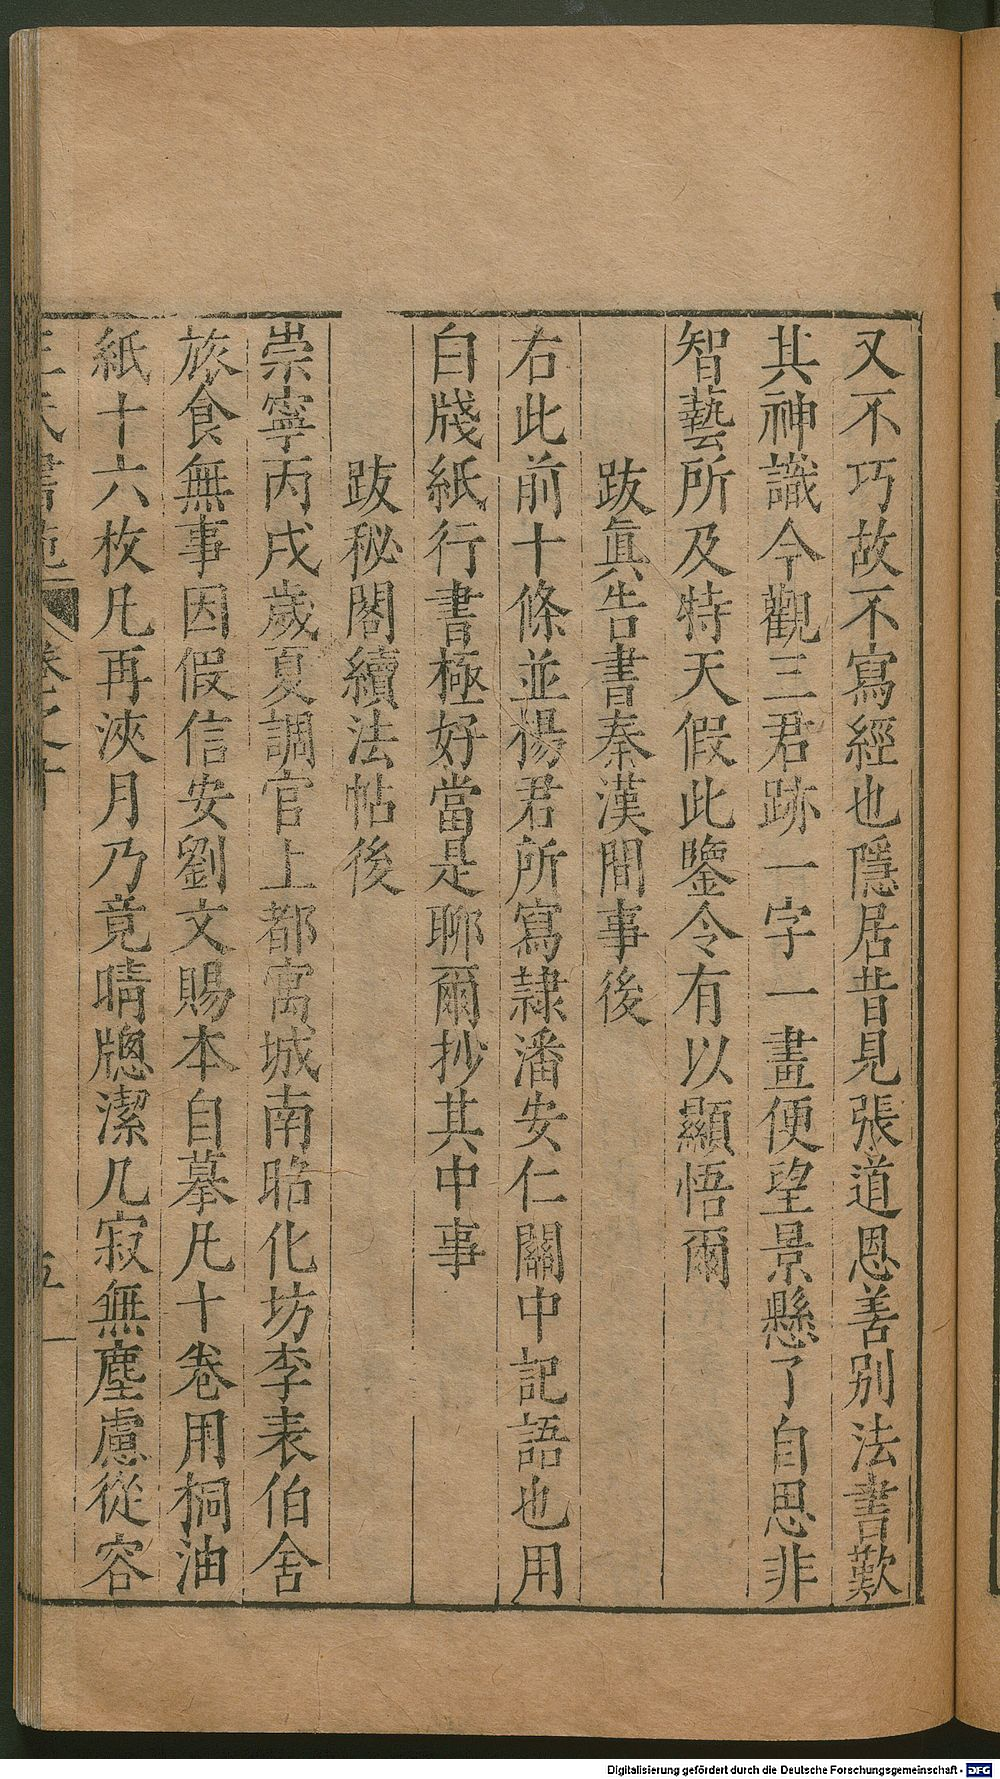 又不巧故不寫經也隱居昔見張道恩善别法書歎
其神識今觀三君跡一字一畫便望景懸了自思非
智藝所及特天假此鑒令有以顯悟爾
跋眞告書秦漢間事後
右此前十條並楊君所寫隷潘安仁關中記語也用
白牋紙行書極好當是聊爾抄其中事
跋秘閣續法帖後
崇寧丙戌歲夏調官上都寓城南昭化坊李表伯舍
旅食無事因假信安劉文賜本自摹凡十卷用桐油
紙十六枚凡再浹月乃竟晴牕潔几寂無塵慮從容
王氏書苑 卷之十 五
Digitalisierung gefördert durch die Deutsche Forschungsgemeinschaft - DFG